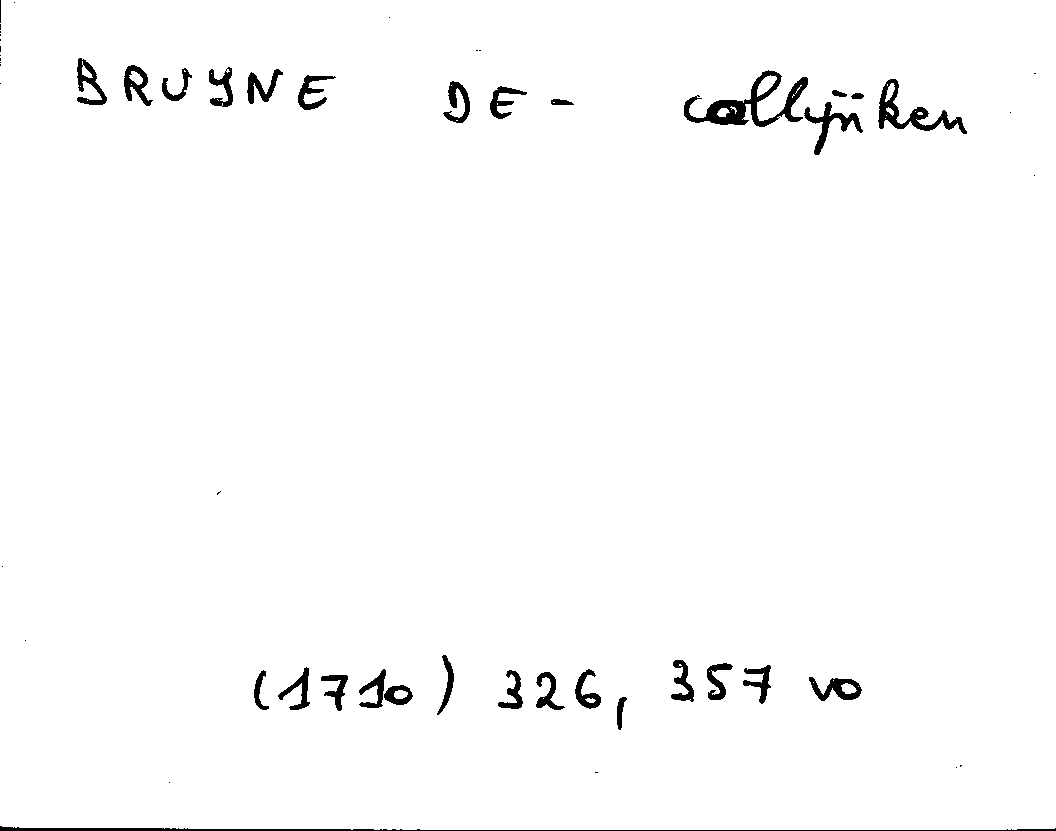 BRUYNE DE - collijnken
(1710) 326, 357 vo